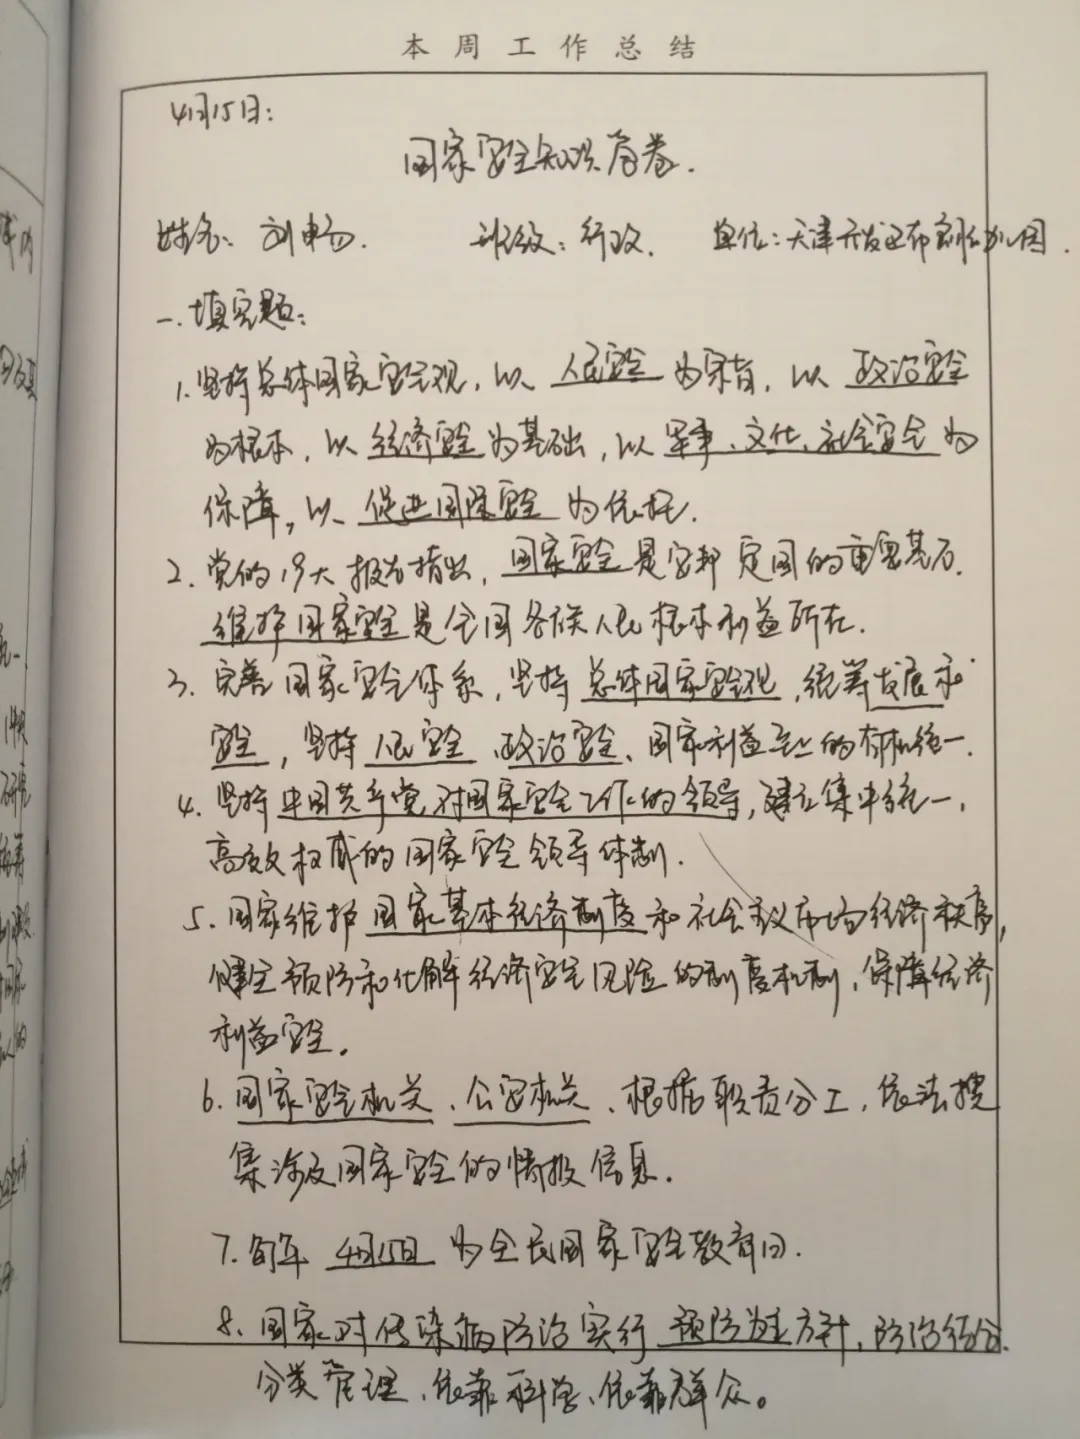 本周工作总结
4月15日：
国家安全知识答卷.
姓名：刘畅. 班级：行政. 单位：天津开发区布朗幼儿园.
一.填空题：
1.坚持总体国家安全观，以 人民安全 为宗旨，以 政治安全
为根本，以 经济安全 为基础，以 军事、文化、社会安全 为
保障，以 促进国际安全 为依托.
2.党的19大报告指出，国家安全是安邦定国的重要基石.
维护国家安全是全国各族人民根本利益所在.
3.完善国家安全体系，坚持 总体国家安全观，统筹发展和
安全，坚持 人民安全、政治安全、国家利益至上的有机统一.
4.坚持中国共产党对国家安全工作的领导，建立集中统一，
高效权威的国家安全领导体制.
5.国家维护国家基本经济制度和社会主义市场经济秩序，
健全预防和化解经济安全风险的制度机制，保障经济
利益安全.
6.国家安全机关、公安机关、根据职责分工，依法搜
集涉及国家安全的情报信息.
7.每年 4月15日 为全民国家安全教育日.
8.国家对传染病防治实行 预防为主方针，防治结合.
分类管理、依靠科学、依靠群众。